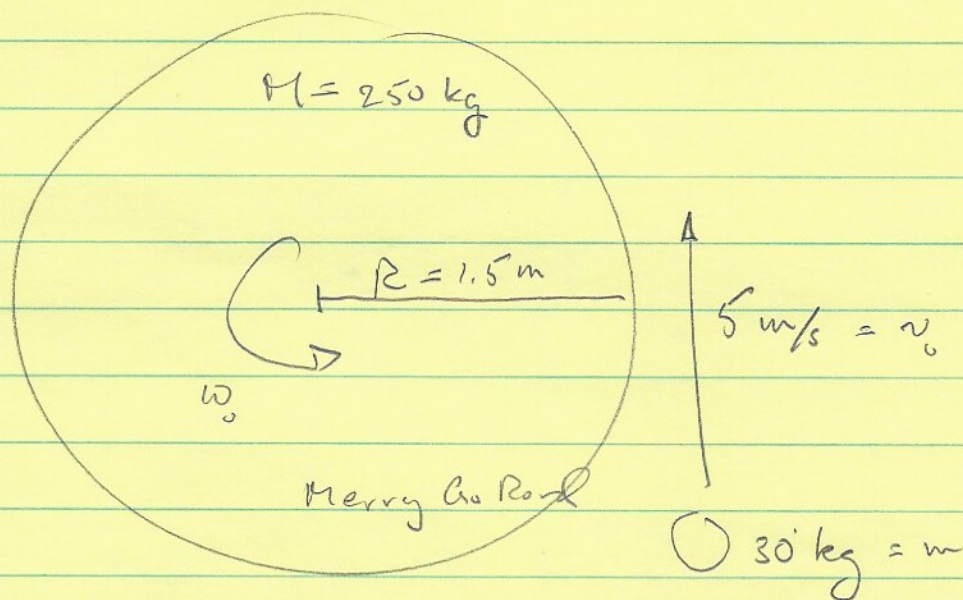 M = 250 kg
R = 1.5 m
5 m/s = v₀
ω₀
Merry Go Rond
30 kg = m